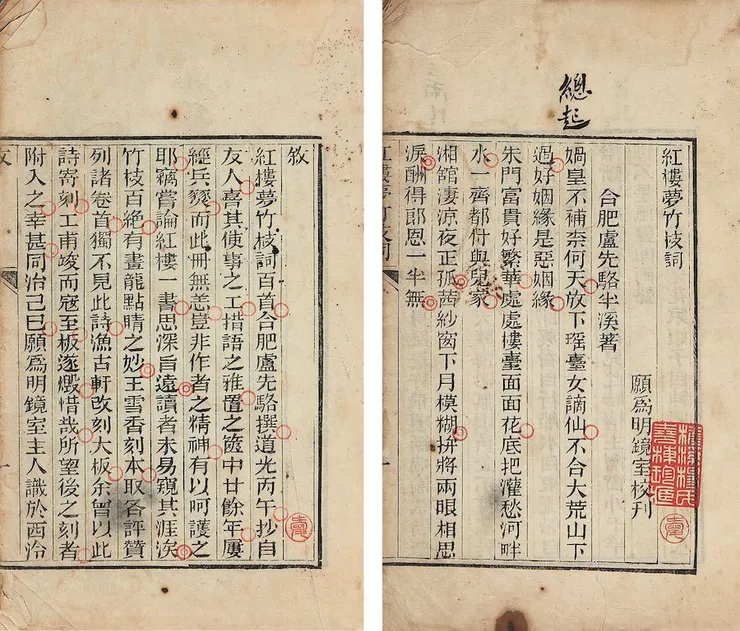 敘
紅樓夢竹枝詞百首合肥盧先駱撰道光丙午抄自
友人喜其使事之工措語之雅置之篋中廿餘年屢
經兵燹而此冊無恙豈非作者之精神有以呵護之
耶竊嘗論紅樓一書思深旨遠讀者未易窺其涯涘
竹枝百絕有畫龍點睛之妙王雪香刻本取各評贊
列諸卷首獨不見此詩漁古軒改刻大板余曾以此
詩寄刻工甫竣而寇至板遂燬惜哉所望後之刻者
附入之幸甚同治己巳願爲明鏡室主人識於西泠
總起
紅樓夢竹枝詞
願爲明鏡室校刊
合肥盧先駱半溪著
媧皇不補奈何天放下瑤臺女謫仙不合大荒山下
過好姻緣是惡姻緣
朱門富貴好繁華處處樓臺面面花底把灌愁河畔
水一齊都付與兒家
湘館淒涼夜正孤茜紗窗下月模糊拚將兩眼相思
淚酬得郎恩一半無